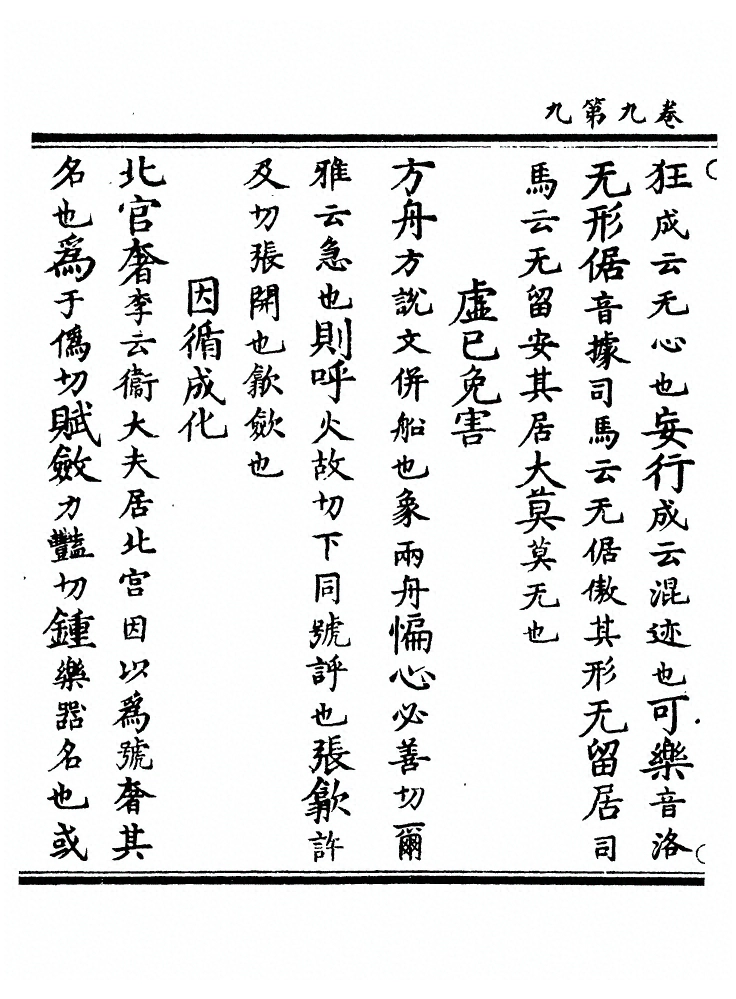 卷九第九
狂成云无心也妄行成云混迹也可樂音洛
无形倨音據司馬云无倨傲其形无留居司
馬云无留安其居大莫莫无也
虛己免害
方舟方說文併船也象兩舟惼心必善切爾
雅云急也則呼火故切下同號評也張歙許
及切張開也歙斂也
因循成化
北宮奢李云衞大夫居北宮因以爲號奢其
名也爲于僞切賦斂力豔切鍾樂器名也或